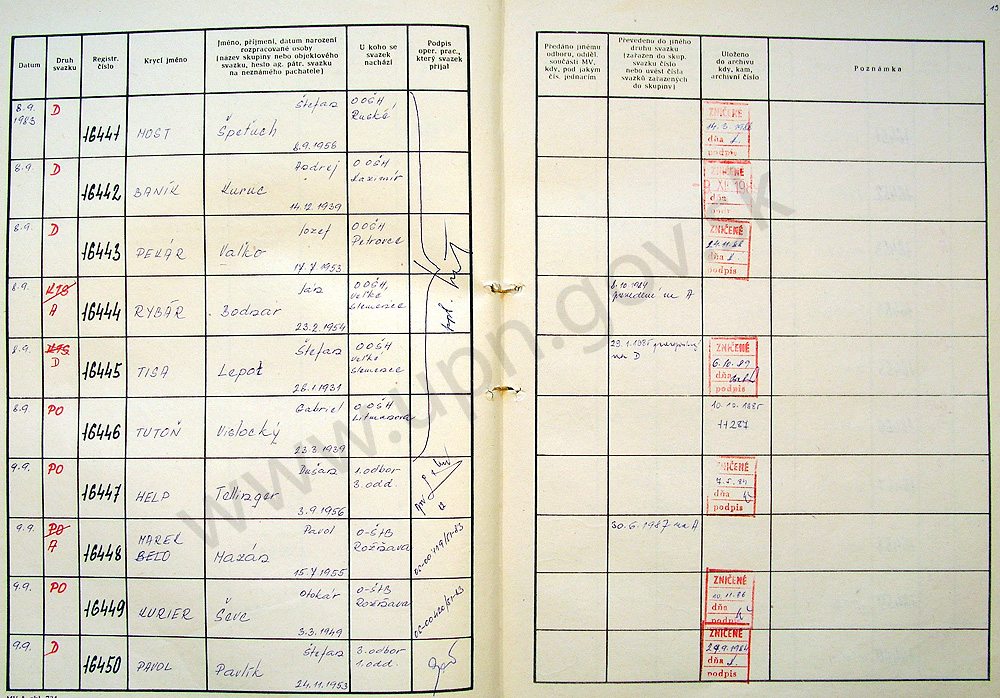 13
Datum
Druh
svazku
Registr.
číslo
Krycí jméno
Jméno, příjmení, datum narození
rozpracované osoby
(název skupiny nebo objektového
svazku, heslo ag. pátr. svazku
na neznámého pachatele)
U koho se
svazek
nachází
Podpis
oper. prac.,
který svazek
přijal
Předáno jinému
odboru, odděl.
součásti MV,
kdy, pod jakým
čís. jednacím
Převedeno do jiného
druhu svazku
(zařazen do skup.
svazku číslo
nebo uvést čísla
svazků zařazených
do skupiny)
Uloženo
do archivu
kdy, kam,
archivní číslo
Poznámka
8.9.
1983
D
16441
MOST
Štefan
Špeťuch
8.9.1956
OOŠH
Ruské
ZNIČENÉ
14.3.1986
dňa
podpis
8.9.
D
16442
BANÍK
Andrej
Kuruc
14.12.1939
OOŠH
ZNIČENÉ
dňa
8.9.
D
16443
PEKÁR
Jozef
Vaľko
17.7.1953
OOŠH
Petrovce
ZNIČENÉ
24.11.86
dňa
podpis
8.9.
KTS
A
16444
RYBÁR
Ján
Bodnár
23.2.1954
OOŠH,
Veľké
Slemence
8.10.1984
prevedené na A
8.9.
KTS
D
16445
TISA
Štefan
Lepot
26.1.1931
OOŠH
Veľké
Slemence
na D
ZNIČENÉ
6.10.89
dňa
podpis
8.9
PO
16446
TUTOŇ
Gabriel
Vislocký
23.3.1939
OOŠH
10.10.1985
11287
9.9.
PO
16447
HELP
Dušan
Tellinger
3.9.1956
1.odbor
3.odd.
ZNIČENÉ
7.5.84
dňa
podpis
9.9.
PO
A
16448
MAREK
BELO
Pavol
Mazán
15.7.1955
O-ŠtB
Rožňava
30.6.1987 na A
9.9.
PO
16449
KURIER
Otokár
Ševc
3.3.1949
O-ŠtB
Rožňava
ZNIČENÉ
10.11.86
dňa
podpis
9.9.
D
16450
PAVOL
Štefan
Pavlík
24.11.1953
3.odbor
1.odd.
ZNIČENÉ
24.9.1984
dňa
podpis
www.upn.gov.sk